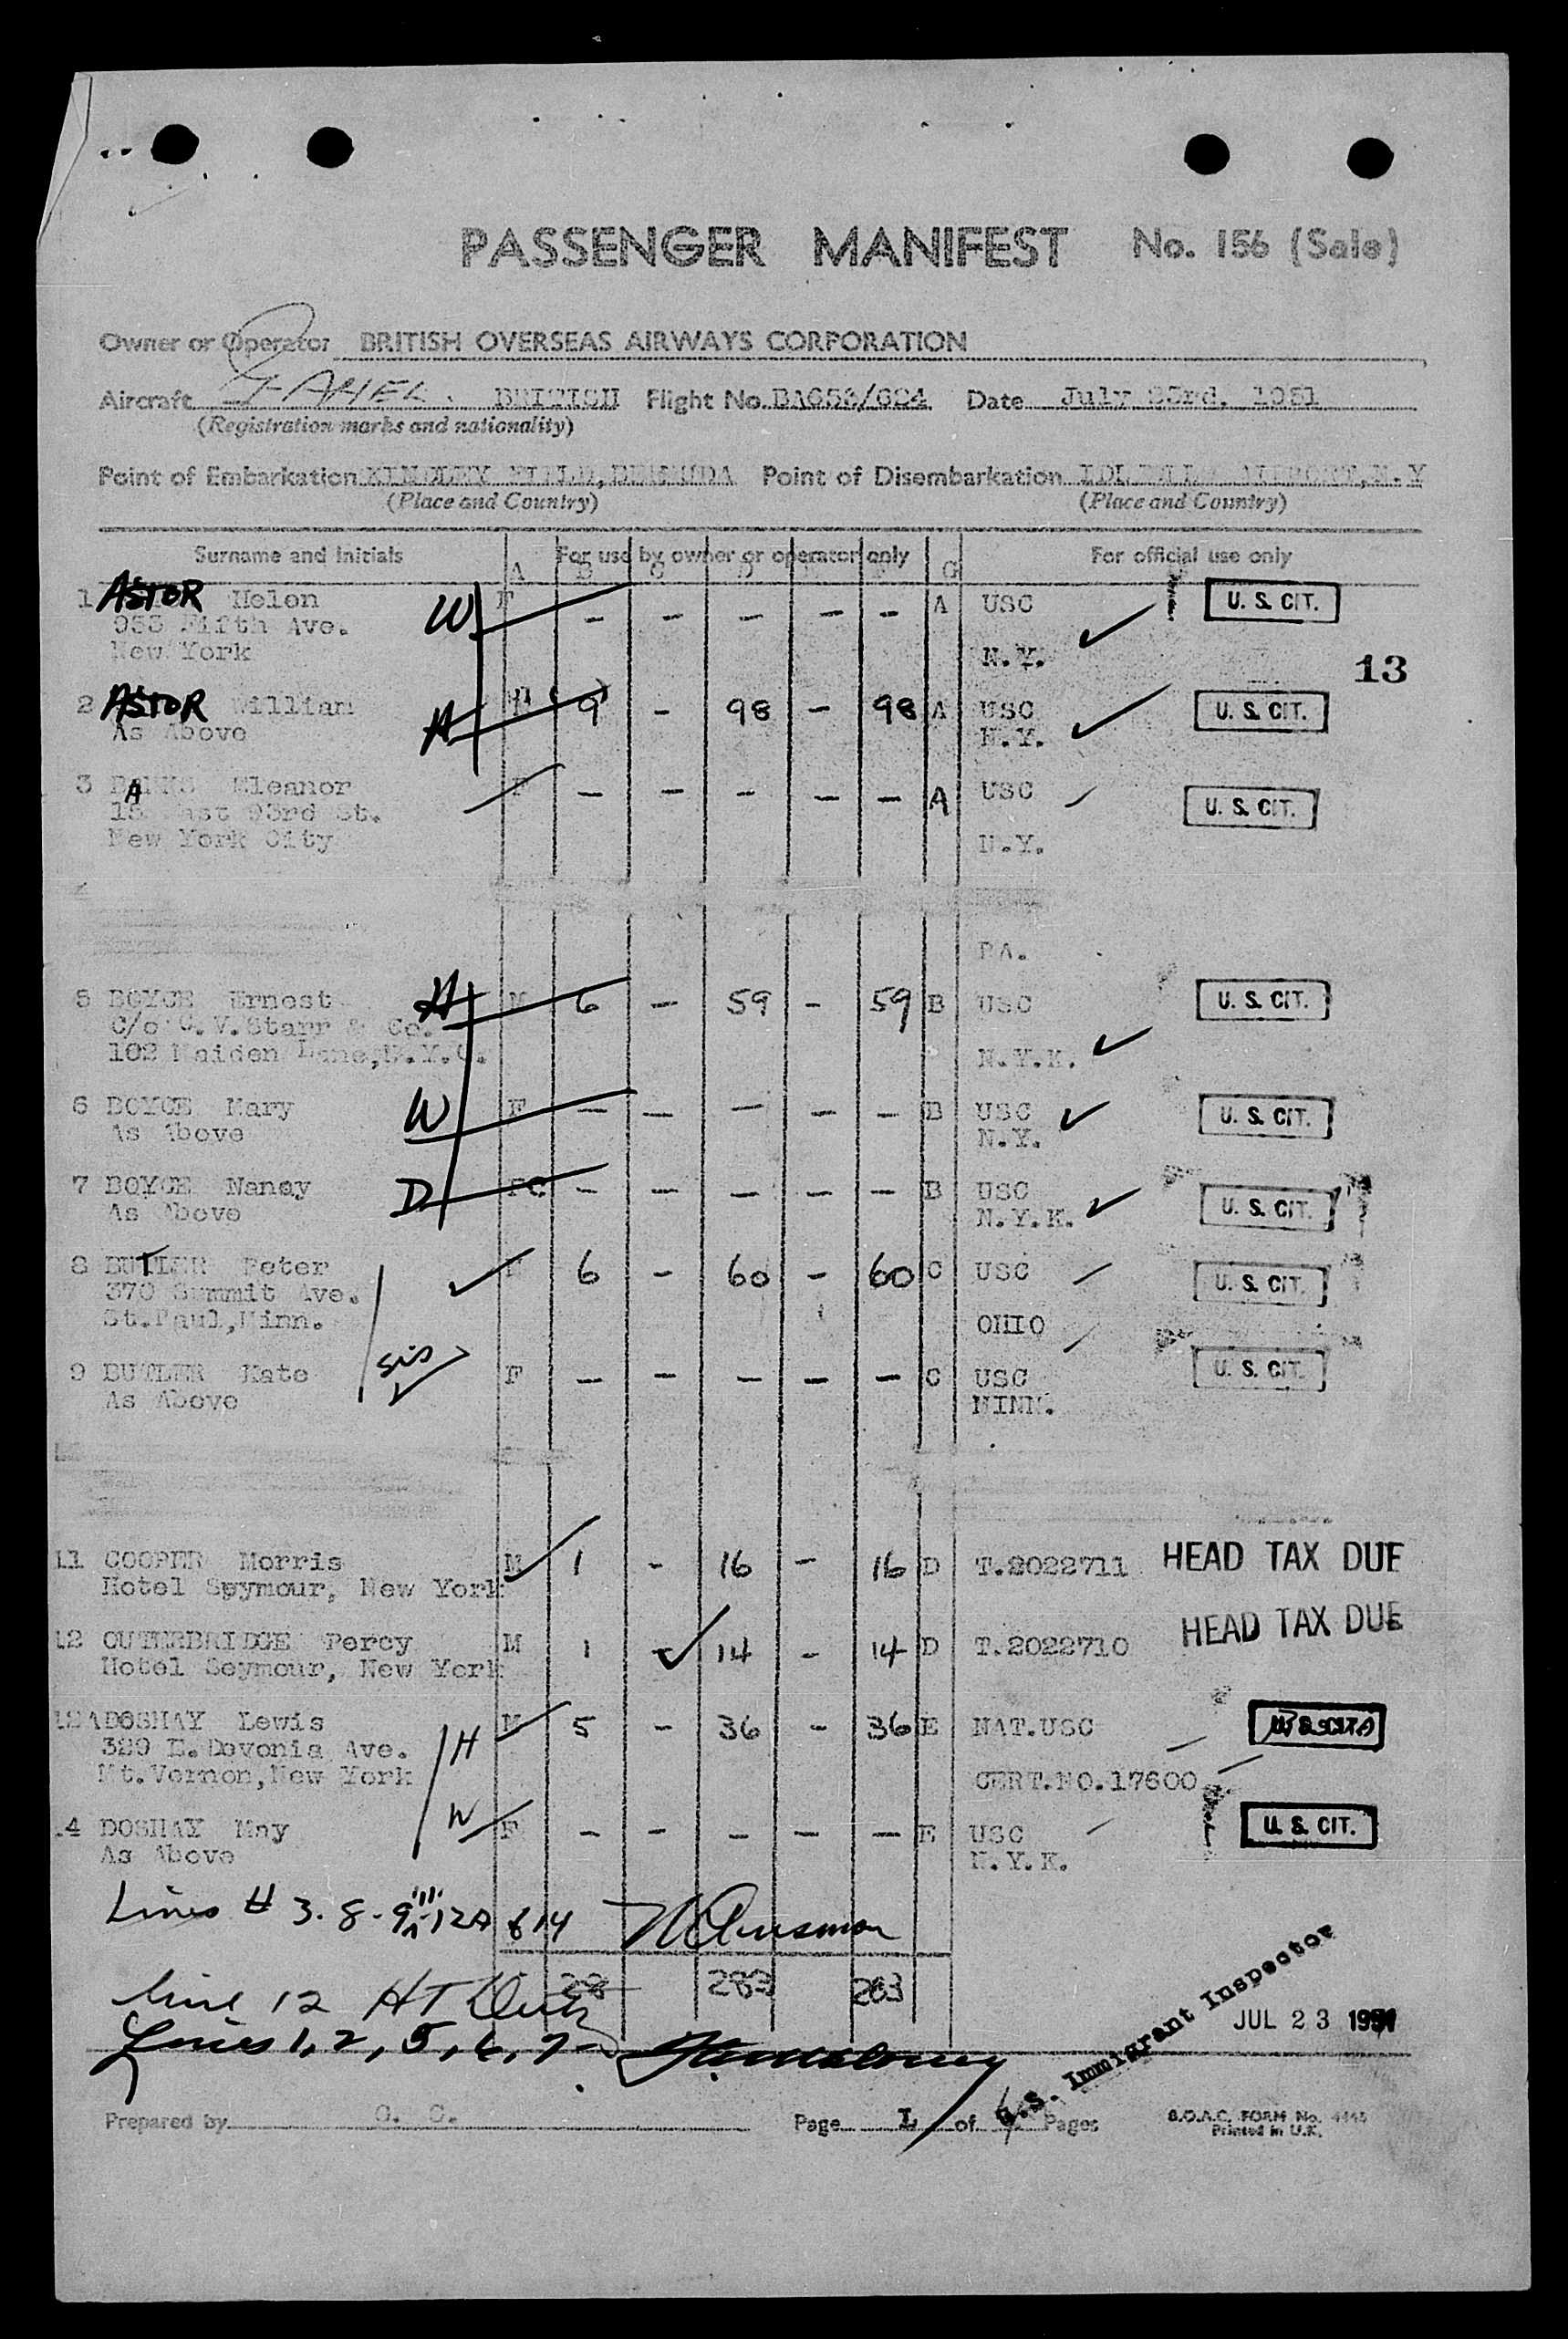 PASSENGER MANIFEST No. 156 (Sale)
Owner or Operator BRITISH OVERSEAS AIRWAYS CORPORATION
Aircraft G-AHEK. BRITISH Flight No. Date July 23rd, 1951
(Registration marks and nationality)
Point of Embarkation KINDLEY FIELD, BERMUDA Point of Disembarkation AIRPORT, N.Y
(Place and Country) (Place and Country)
Surname and Initials For use by owner or operator only For official use only
A B C D F G
1 ASTOR Helen W F - - - - - A USC U. S. CIT.
Fifth Ave.
New York N.Y.
13
2 ASTOR William H 9 - 98 - 98 A USC U. S. CIT.
As Above N.Y.
3 Eleanor F - - - - - A USC U. S. CIT.
East 93rd St.
New York City N.Y.
PA.
5 BOYCE Ernest H M 6 - 59 - 59 B USC U. S. CIT.
C/o C.V.Starr & Co.
102 Maiden Lane,N.Y.C. N.Y.K.
6 BOYCE Mary W F - - - - - B USC U. S. CIT.
As Above N.Y.
7 BOYCE Nancy D FC - - - - - B USC U. S. CIT.
As Above N.Y.K.
8 BUTLER Peter 6 - 60 - 60 C USC U. S. CIT.
370 Summit Ave.
St.Paul,Minn. OHIO
sis
9 BUTLER Kate F - - - - - C USC U. S. CIT.
As Above MINN.
11 COOPER Morris M 1 - 16 - 16 D T.2022711 HEAD TAX DUE
Hotel Seymour, New York
12 OUTERBRIDGE Percy M 1 - 14 - 14 D T.2022710 HEAD TAX DUE
Hotel Seymour, New York
12A DOSHAY Lewis H M 5 - 36 - 36 E NAT.USC
329 E.Devonia Ave.
Mt.Vernon,New York CERT.NO.17600
14 DOSHAY May W F - - - - - E USC U. S. CIT.
As Above N.Y.K.
Lines # 3. 8. 9. 11 12A & 14
28 283 283
Line 12 HT
Lines 1, 2, 5, 6, 7
U.S. Immigrant Inspector
JUL 23 1951
Prepared by Page 1 of Pages B.O.A.C. FORM No.
Printed in U.K.